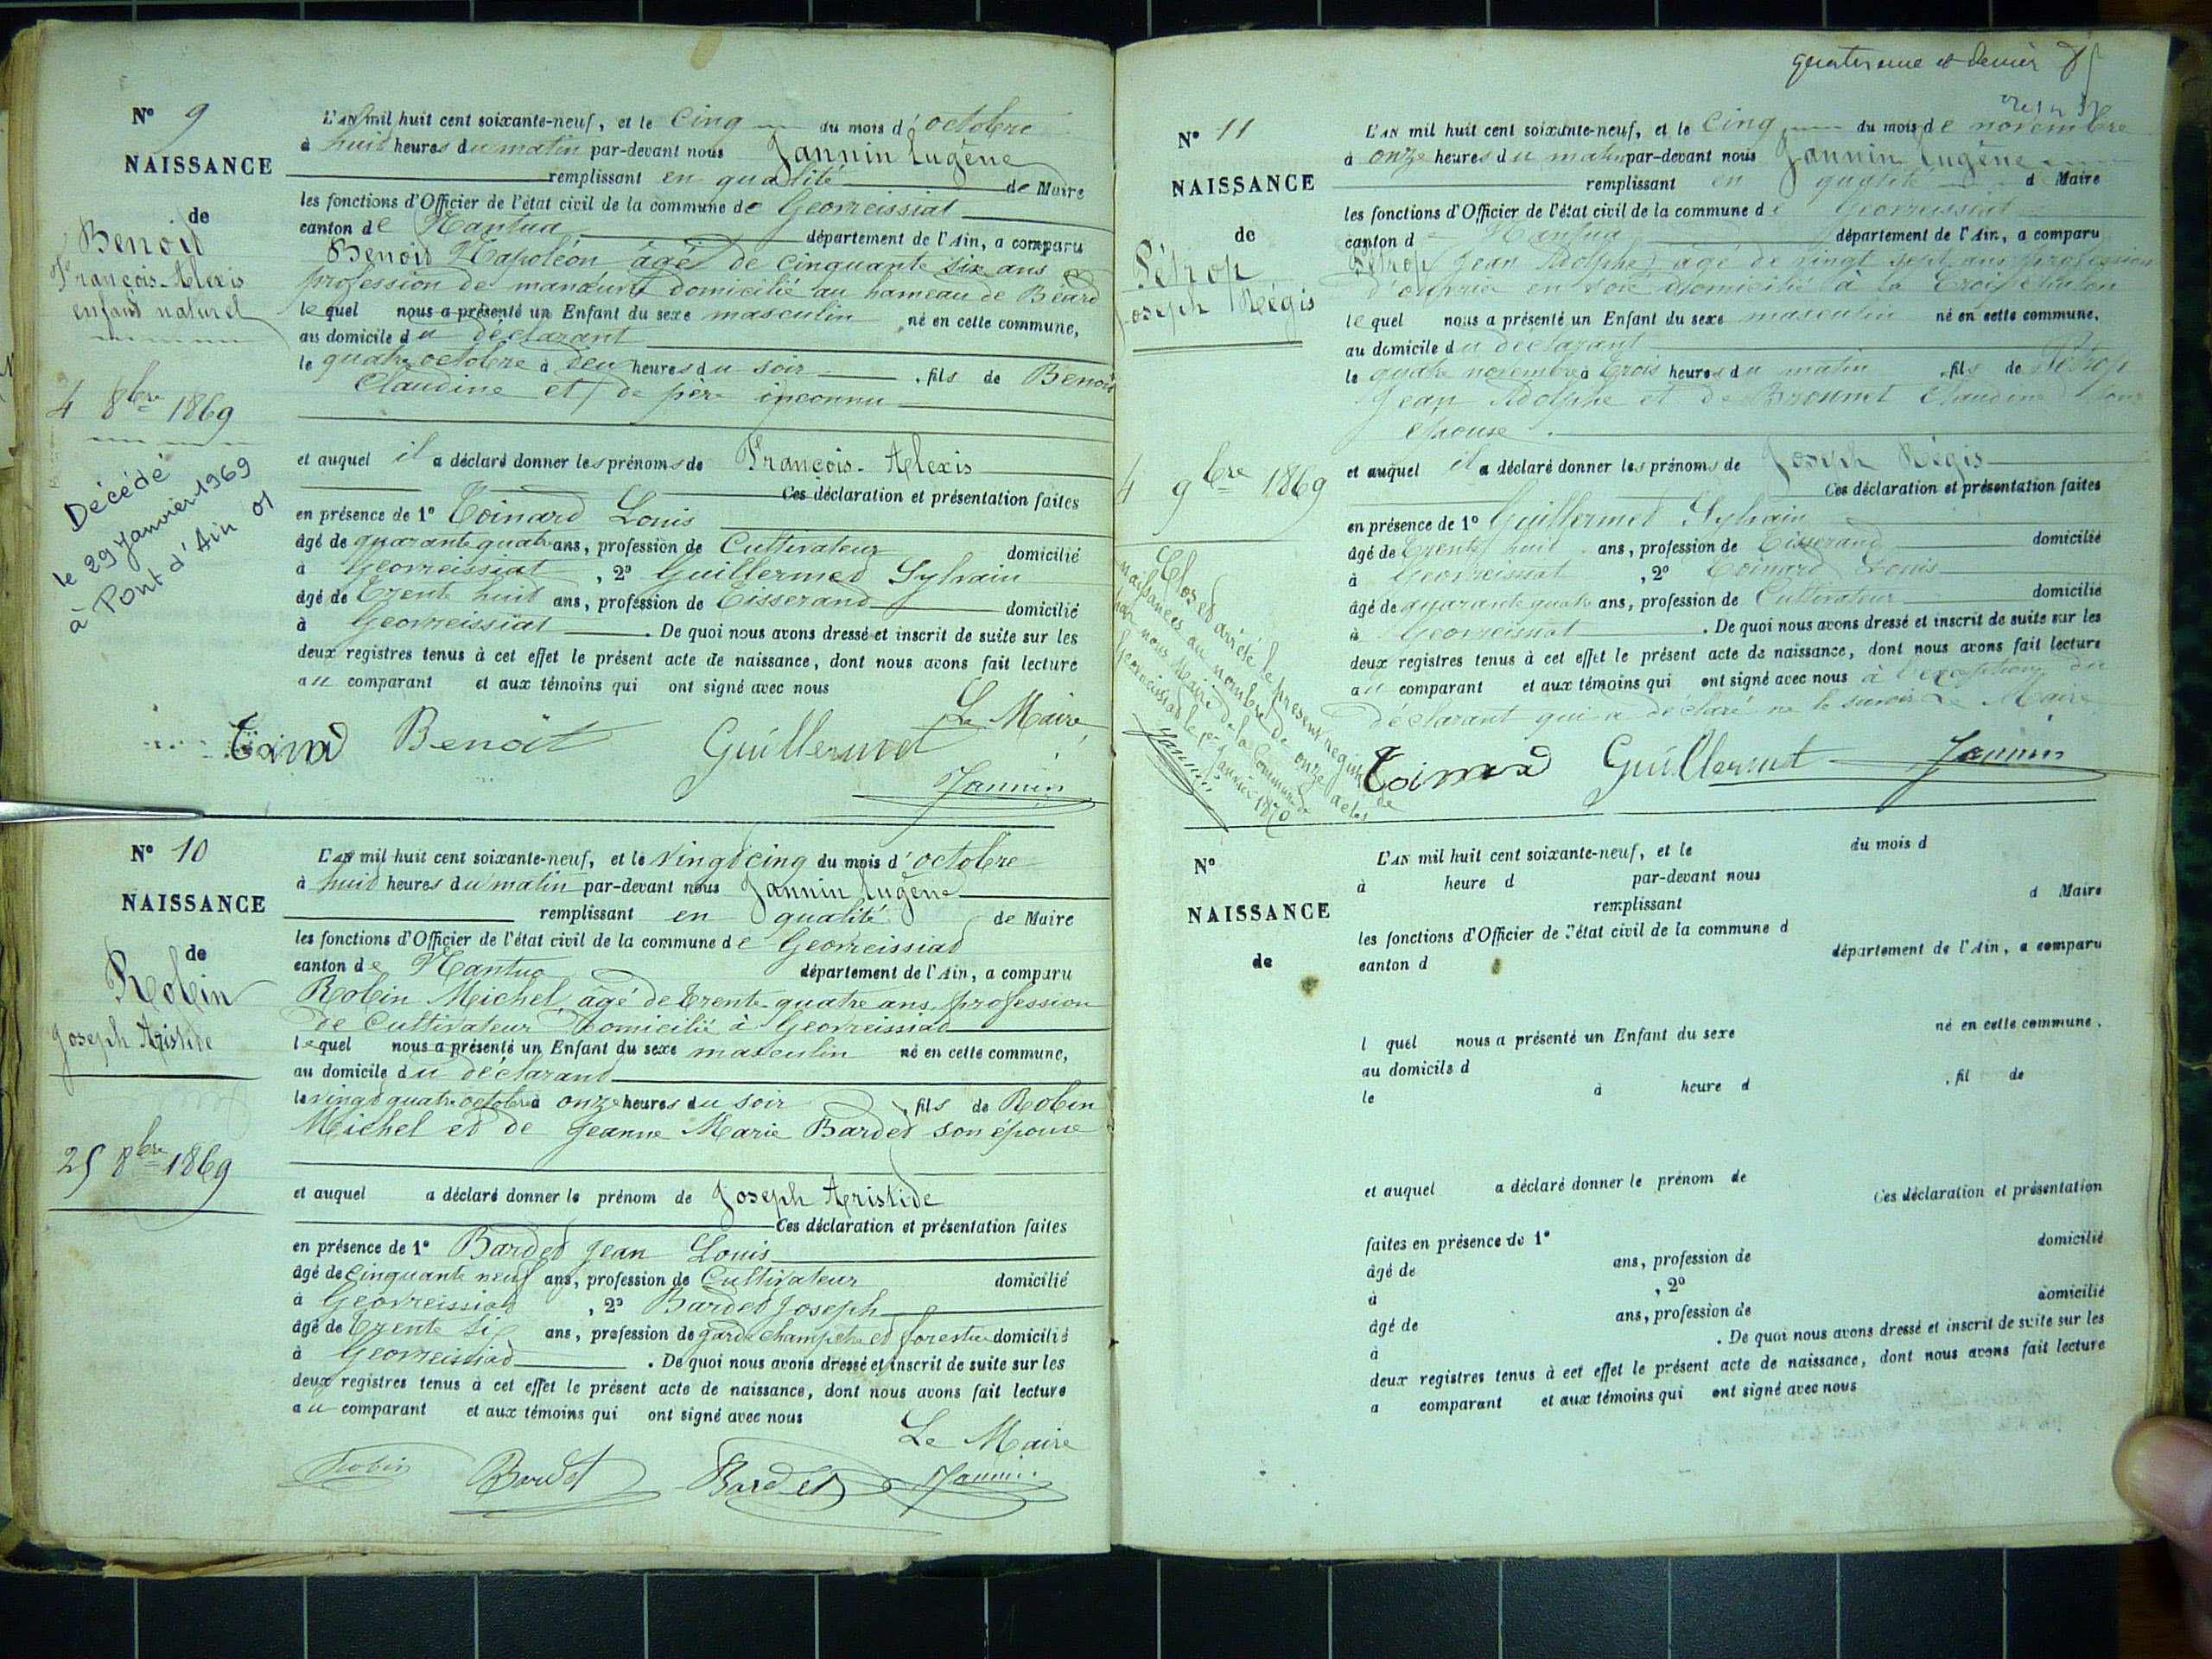 N° 9
NAISSANCE
de
Benoit
François-Alexis
enfant naturel
4 8bre 1869
Décédé
le 29 Janvier 1969
à Pont d'Ain 01
L'AN mil huit cent soixante-neuf, et le Cinq du mois d'octobre
à huit heures du matin par-devant nous Jannin Eugène
remplissant en qualité de Maire
les fonctions d'Officier de l'état civil de la commune de Géovreissiat
canton de Nantua département de l'Ain, a comparu
Benoit Napoléon âgé de cinquante six ans
profession de manœuvre domicilié au hameau de Béard
lequel nous a présenté un Enfant du sexe masculin né en cette commune,
au domicile du déclarant
le quatre octobre à deux heures du soir, fils de Benoit
Claudine et de père inconnu
et auquel il a déclaré donner les prénoms de François-Alexis
Ces déclaration et présentation faites
en présence de 1° Toinard Louis
âgé de quarante quatre ans, profession de Cultivateur domicilié
à Géovreissiat, 2° Guillermet Sylvain
âgé de Trente huit ans, profession de Tisserand domicilié
à Géovreissiat. De quoi nous avons dressé et inscrit de suite sur les
deux registres tenus à cet effet le présent acte de naissance, dont nous avons fait lecture
au comparant et aux témoins qui ont signé avec nous
Le Maire
Toinard Benoit Guillermet
Jannin
N° 10
NAISSANCE
de
Robin
Joseph Aristide
25 8bre 1869
L'AN mil huit cent soixante-neuf, et le Vingt cinq du mois d'octobre
à huit heures du matin par-devant nous Jannin Eugène
remplissant en qualité de Maire
les fonctions d'Officier de l'état civil de la commune de Géovreissiat
canton de Nantua département de l'Ain, a comparu
Robin Michel, âgé de trente-quatre ans, profession
de Cultivateur domicilié à Géovreissiat
lequel nous a présenté un Enfant du sexe masculin né en cette commune,
au domicile du déclarant
le vingt quatre octobre à onze heures du soir, fils de Robin
Michel et de Jeanne Marie Bardet son épouse
et auquel a déclaré donner le prénom de Joseph Aristide
Ces déclaration et présentation faites
en présence de 1° Bardet Jean Louis
âgé de cinquante neuf ans, profession de Cultivateur domicilié
à Géovreissiat, 2° Bardet Joseph
âgé de Trente six ans, profession de garde champêtre et forestier domicilié
à Géovreissiat. De quoi nous avons dressé et inscrit de suite sur les
deux registres tenus à cet effet le présent acte de naissance, dont nous avons fait lecture
au comparant et aux témoins qui ont signé avec nous
Le Maire
Robin Bardet Bardet Jannin
quatrieme et dernier
N° 11
NAISSANCE
de
Pétrop
Joseph Régis
4 9bre 1869
Clos et arrêté le présent registre de
naissances au nombre de onze actes
par nous Maire de la Commune de
Géovreissiat le 1er Janvier 1870
Jannin
L'AN mil huit cent soixante-neuf, et le Cinq du mois de novembre
à onze heures du matin par-devant nous Jannin Eugène
remplissant en qualité d Maire
les fonctions d'Officier de l'état civil de la commune de Géovreissiat
canton d Nantua département de l'Ain, a comparu
Pétrop Jean Adolphe âgé de vingt sept ans profession
d'ouvrier en soie domicilié à la Croix Chalon
lequel nous a présenté un Enfant du sexe masculin né en cette commune,
au domicile du déclarant
le quatre novembre à trois heures du matin, fils de Pétrop
Jean Adolphe et de Brounet Claudine son
épouse.
et auquel il a déclaré donner les prénoms de Joseph Régis
Ces déclaration et présentation faites
en présence de 1° Guillermet Sylvain
âgé de Trente huit ans, profession de Tisserand domicilié
à Géovreissiat, 2° Toinard Louis
âgé de quarante quatre ans, profession de Cultivateur domicilié
à Géovreissiat. De quoi nous avons dressé et inscrit de suite sur les
deux registres tenus à cet effet le présent acte de naissance, dont nous avons fait lecture
au comparant et aux témoins qui ont signé avec nous à l'exception du
déclarant qui a déclaré ne le savoir Le Maire
Toinard Guillermet Jannin
N°
NAISSANCE
de
L'AN mil huit cent soixante-neuf, et le du mois d
à heure d par-devant nous
remplissant d Maire
les fonctions d'Officier de l'état civil de la commune d
canton d département de l'Ain, a comparu
l quel nous a présenté un Enfant du sexe né en cette commune,
au domicile d
le à heure d , fil de
et auquel a déclaré donner le prénom de
Ces déclaration et présentation
faites en présence de 1°
âgé de ans, profession de domicilié
à , 2°
âgé de ans, profession de domicilié
à . De quoi nous avons dressé et inscrit de suite sur les
deux registres tenus à cet effet le présent acte de naissance, dont nous avons fait lecture
a comparant et aux témoins qui ont signé avec nous